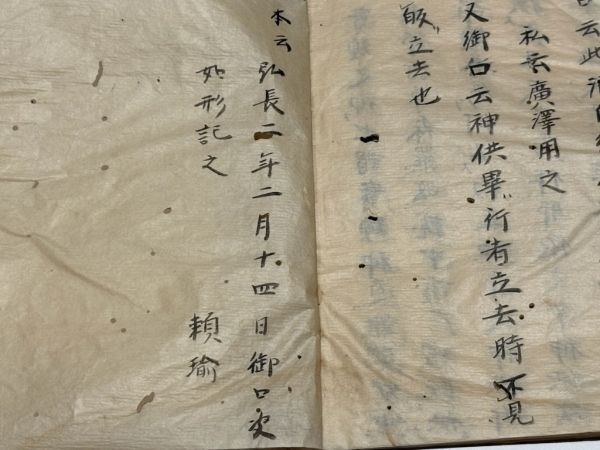 云此
私云廣澤用之
又御口云神供畢行者立去時不見
皈立去也
本云弘長二年二月十四日御口决
如形記之
頼瑜